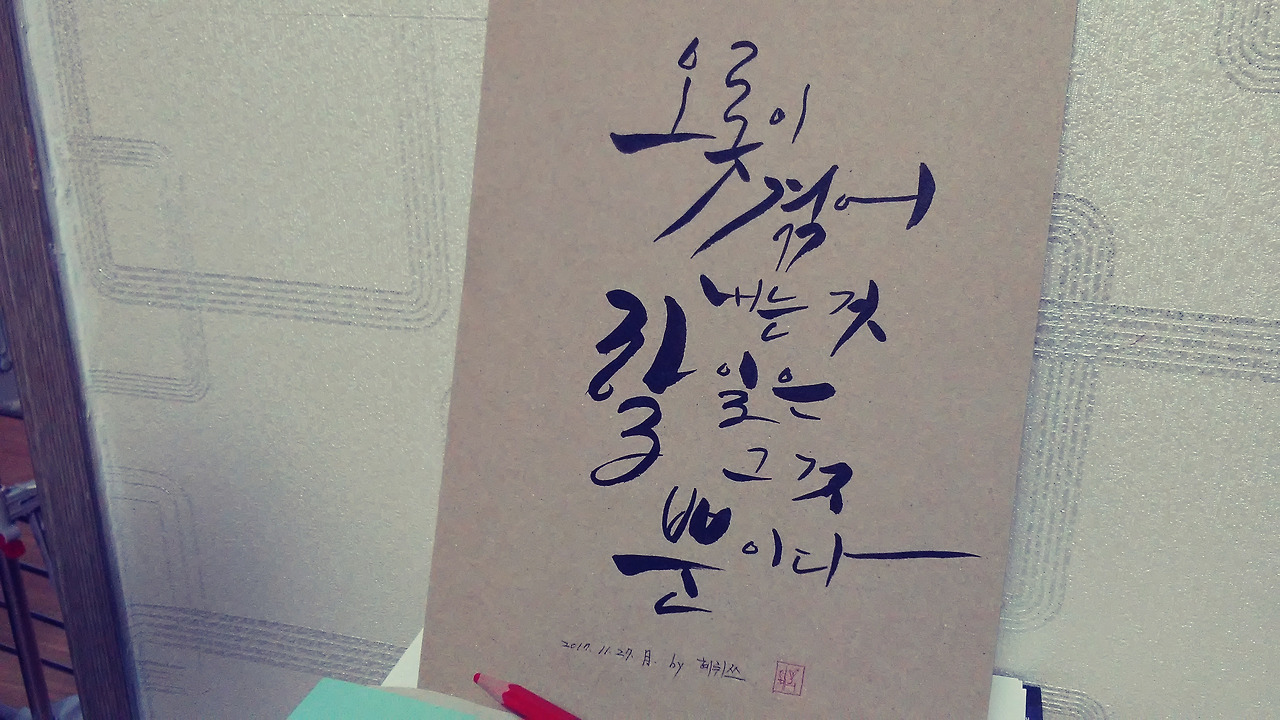 오롯이
겪어
내는 것
할 일은
그것
뿐이다
2017. 11. 27. 月. by